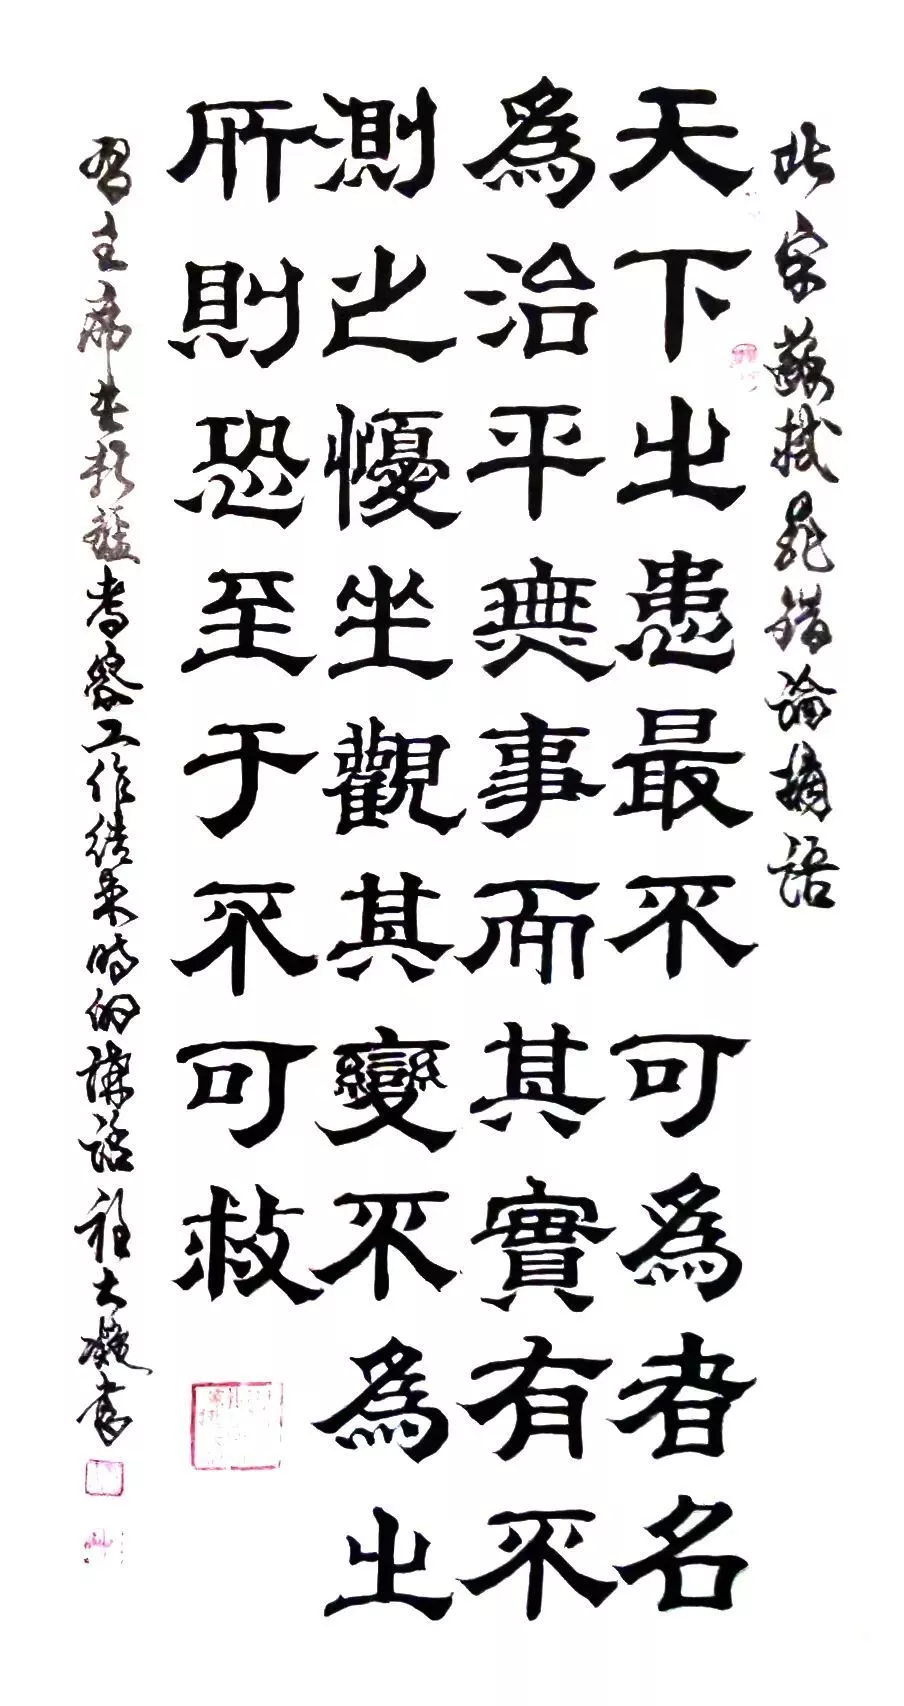 此宋蘇軾晁錯論摘語
天下之患最不可爲者名
爲治平無事而其實有不
測之懮坐觀其變不爲之
所則恐至于不可救
習主席在新疆考察工作結束時的講話程大凝書